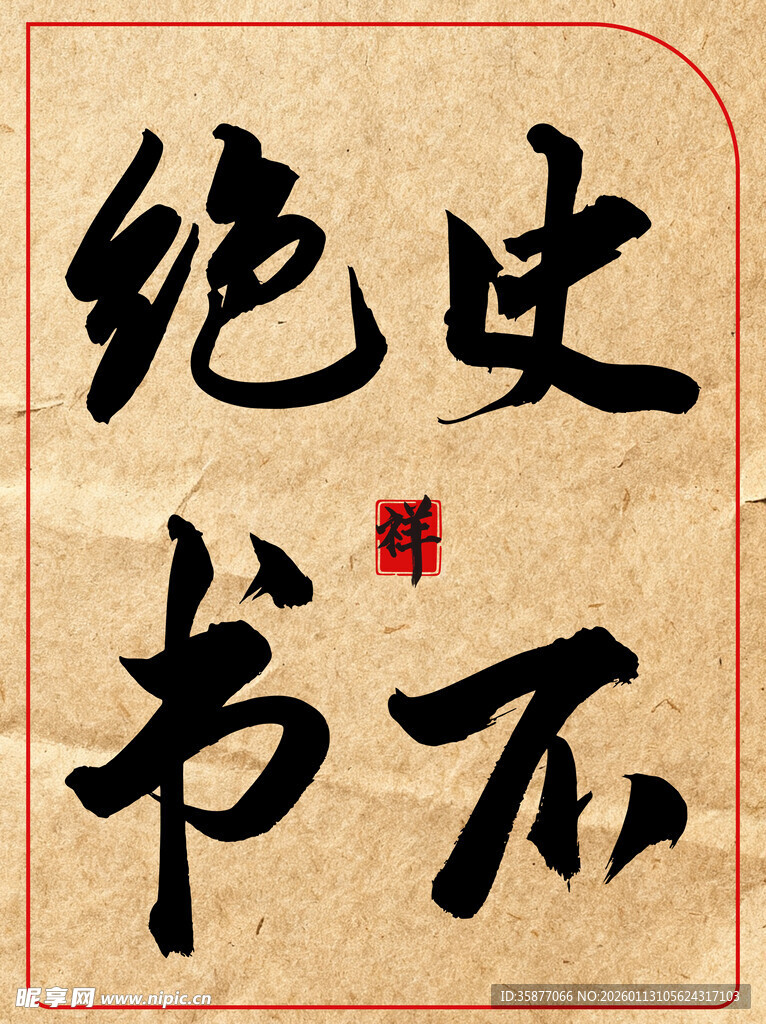 史不
绝书
祥
昵享网 www.nipic.cn
ID:35877066 NO:20260113105624317103